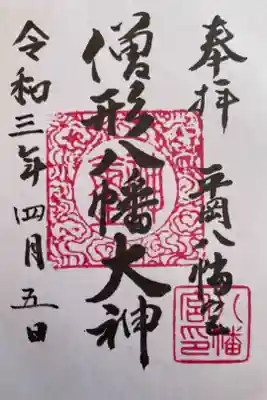 奉拝
平岡八幡宮
僧形八幡大神
令和三年四月五日
八幡宮印